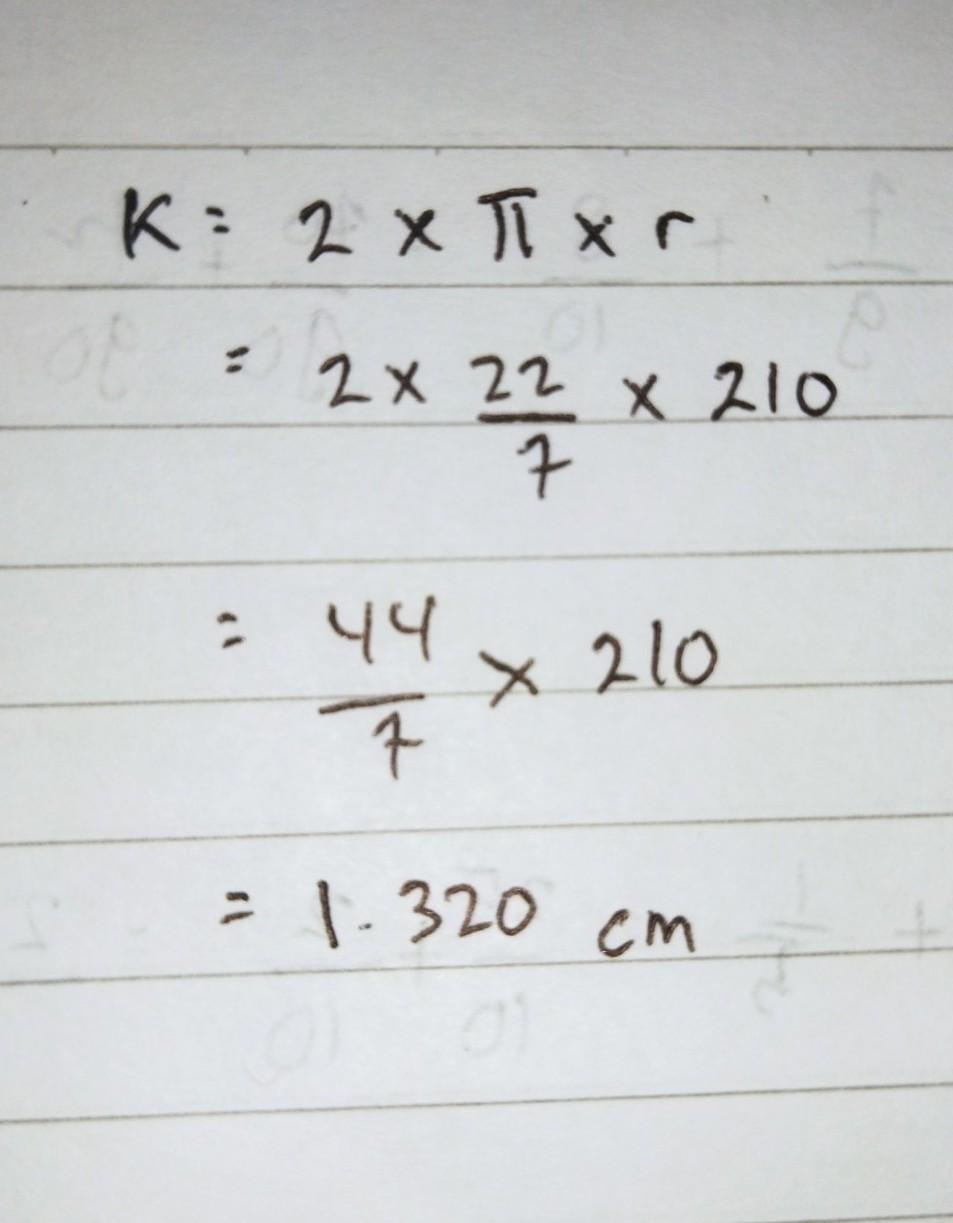 K = 2 x π x r
= 2 x 22/7 x 210
= 44/7 x 210
= 1.320 cm